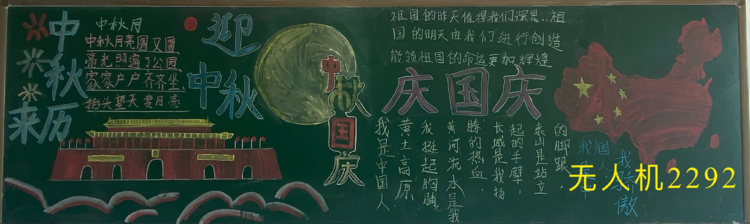 中秋
来历
中秋月
中秋月亮圆又圆
亮光照遍了公园
家家户户齐齐坐
抬头望天赏月亮
迎
中秋
中秋
国庆
祖国的昨天值得我们深思..祖
国的明天由我们进行创造
能领祖国的命运更加辉煌
庆国庆
我早中国人
黄土高原
我挺起胸膛
黄河流水是我
腾的热血,
长城是我扬
起的手臂,
泰山是站立
的脚跟.
我
国
我骄傲
无人机2292